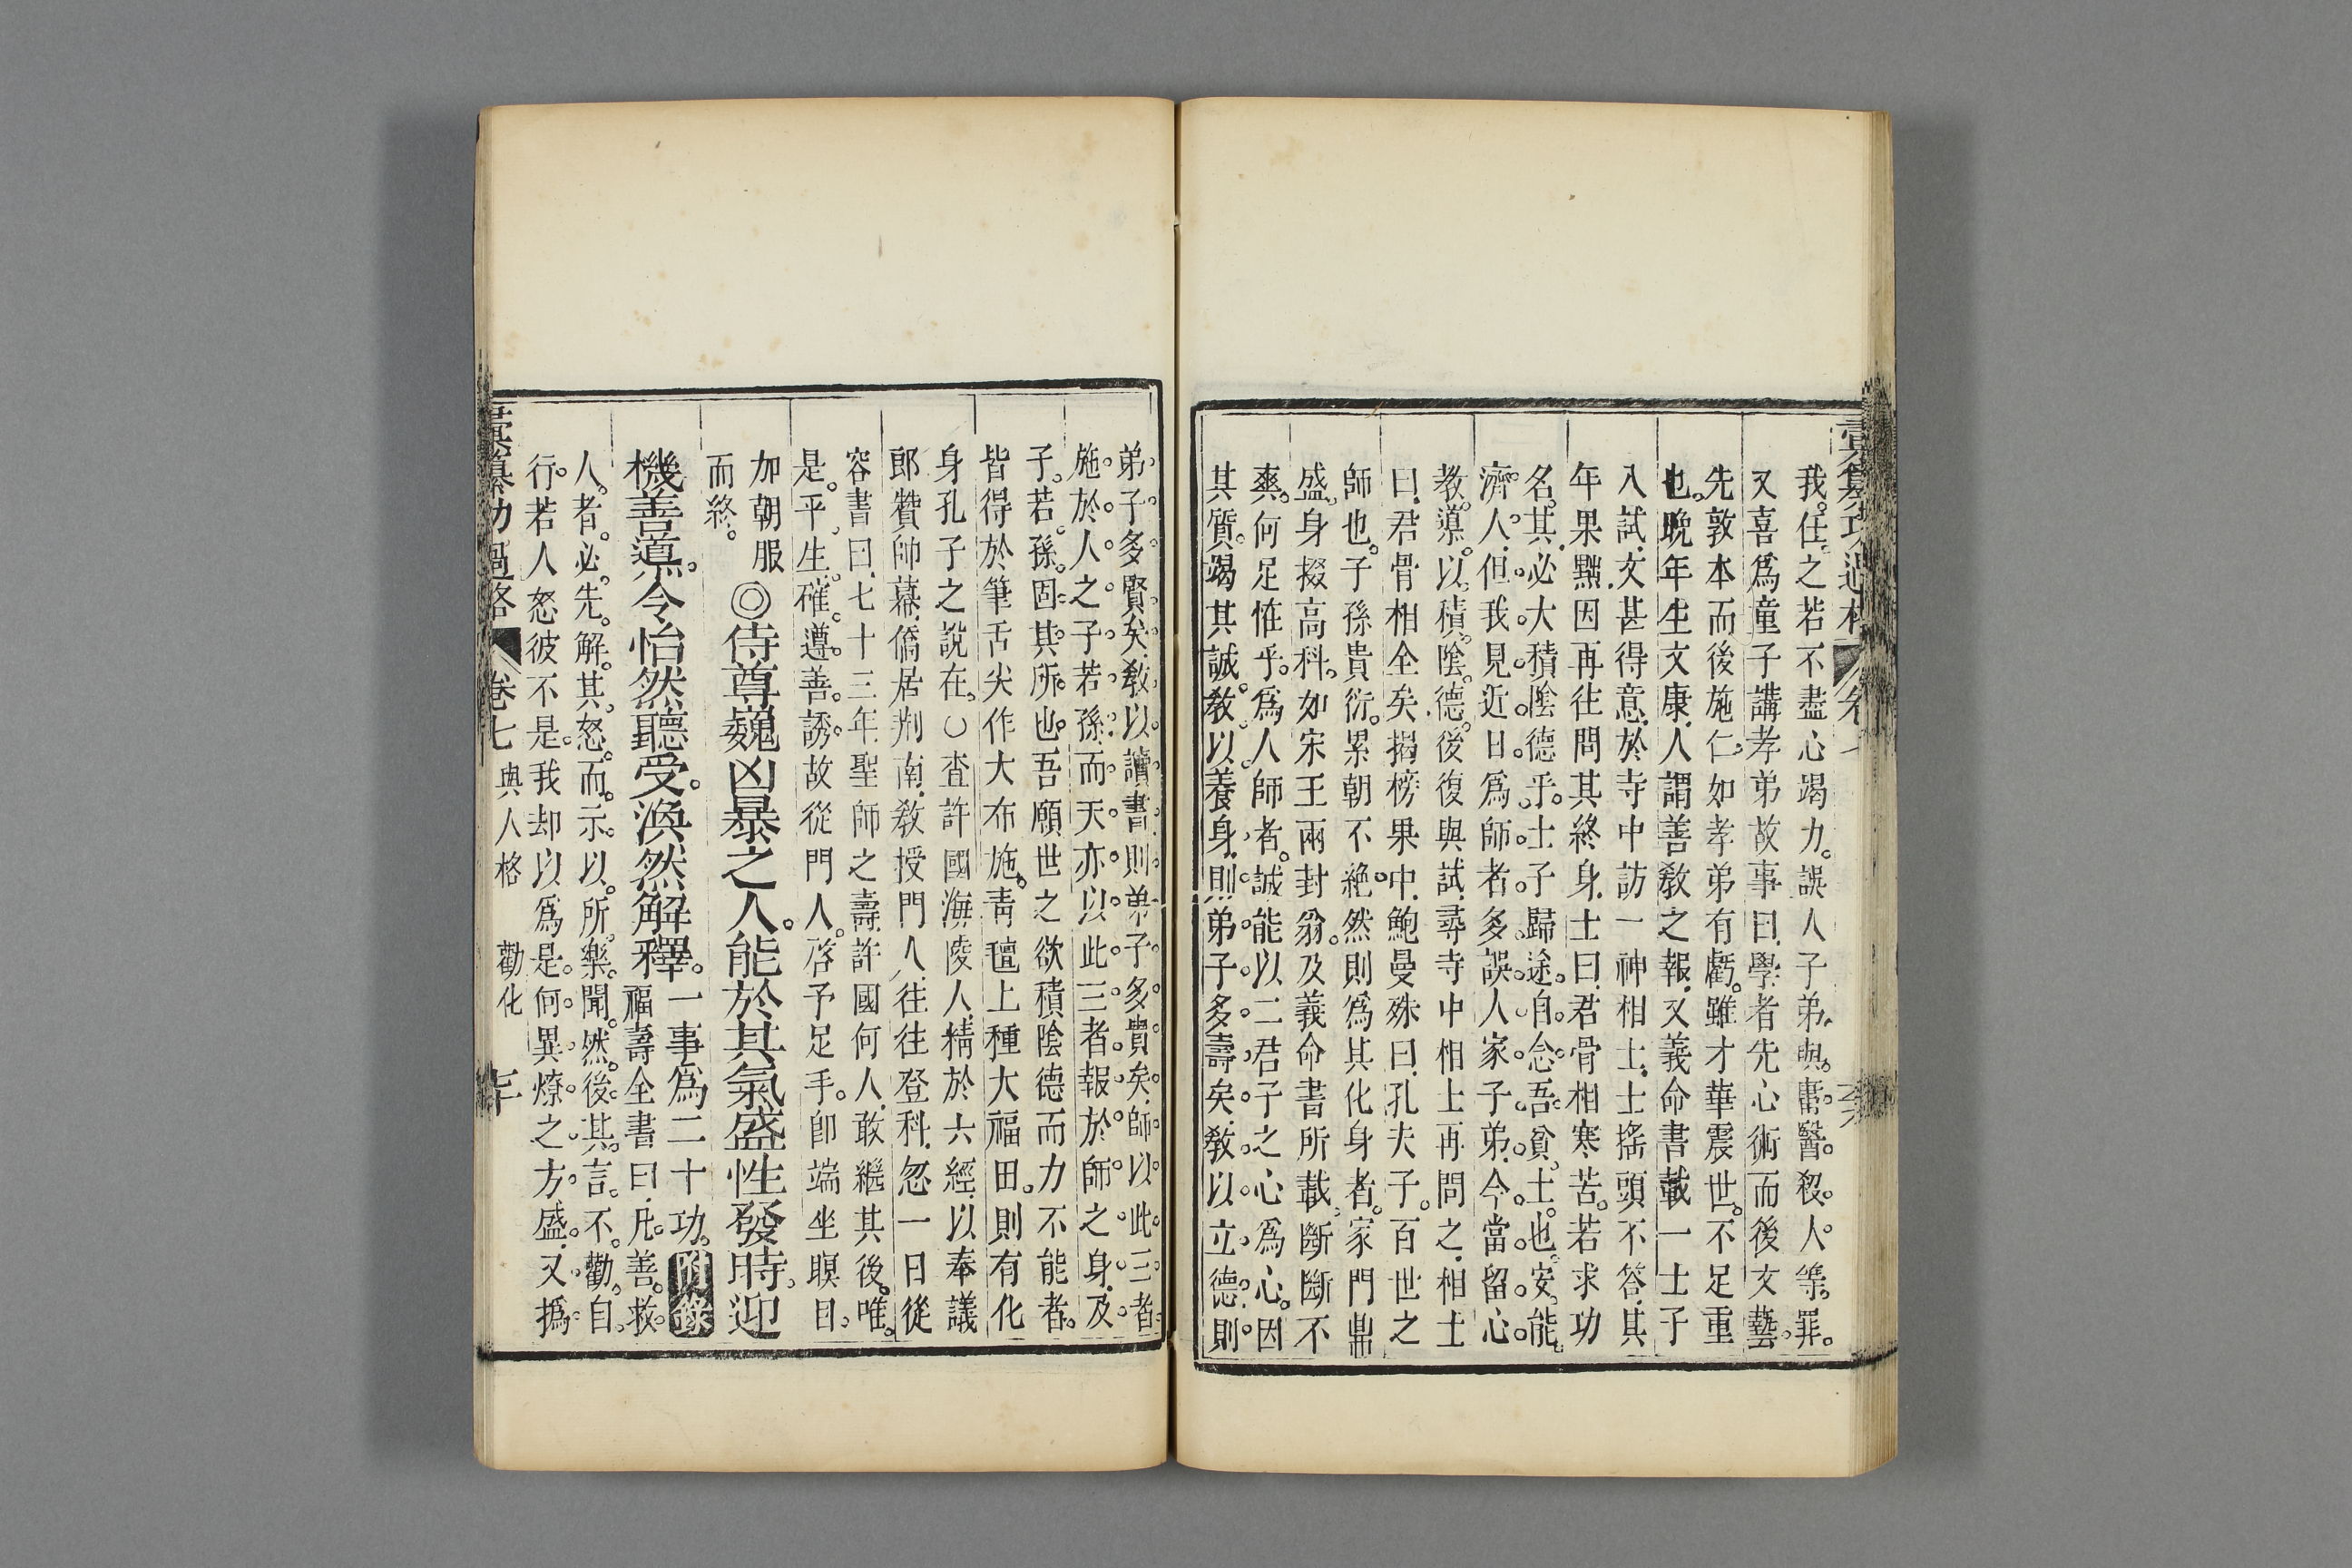 我任之若不盡心竭力。誤人子弟。與。庸。醫。殺。人。等。罪。
又喜爲童子講孝弟故事曰學者先心術而後文藝。
先敦本而後施仁。如孝弟有虧。雖才華震世。不足重
也。晚年生文康人謂善敎之報又義命書載一士子
入試文甚得意於寺中訪一神相士士搖頭不答其
年果黜因再往問其終身士曰君骨相寒苦。若求功
名。其必大積陰德乎。士子歸途。自念。吾。貧。士。也。安。能。
濟。人。但。我。見。近。日。爲。師。者。多。誤。人。家。子。弟。今。當。留。心。
教。導。以。積。陰。德。後復與試尋寺中相士再問之相士
曰君骨相全矣揭榜果中鮑曼殊曰孔夫子。百世之
師也。子孫貴衍。累朝不絶。然則爲其化身者。家門鼎
盛。身掇高科。如宋王兩封翁。及義命書所載。斷斷不
爽。何足怪乎。爲人師者。誠能以二君子之心爲心。因
其質。竭其誠。敎以。養。身。則。弟。子。多。壽。矣。敎。以。立。德。則。
弟。子。多。賢。矣。敎。以。讀。書。則。弟。子。多。貴。矣。師。以。此。三。者。
施。於。人。之。子。若。孫。而。天。亦。以。此。三。者。報。於。師。之。身。及。
子。若。孫。固。其。所。也。吾願世之欲積陰德而力不能者。
皆得於筆舌尖作大布施。靑氊上種大福田。則有化
身孔子之說在。○查許國海陵人精於六經以奉議
郞贊帥幕僑居荆南敎授門人往往登科忽一日從
容書曰七十三年聖師之壽許國何人敢繼其後。唯。
是。平。生。確。遵。善。誘。故從門人。啓予足手。卽端坐瞑目。
加朝服
而終。
◎侍尊巍凶暴之人。能於其氣盛性發時。迎
機善道。令怡然聽受。渙然解釋。
一事爲二十功。附錄
福壽全書曰凡善。救
人。者。必。先。解。其。怒。而。示。以。所。樂。聞。然。後。其。言。不。勸。自。
行。若人怒彼不是。我却以爲是。何。異。燎。之。方。盛。又。撝
彙纂功過格 卷七 與人格 勸化